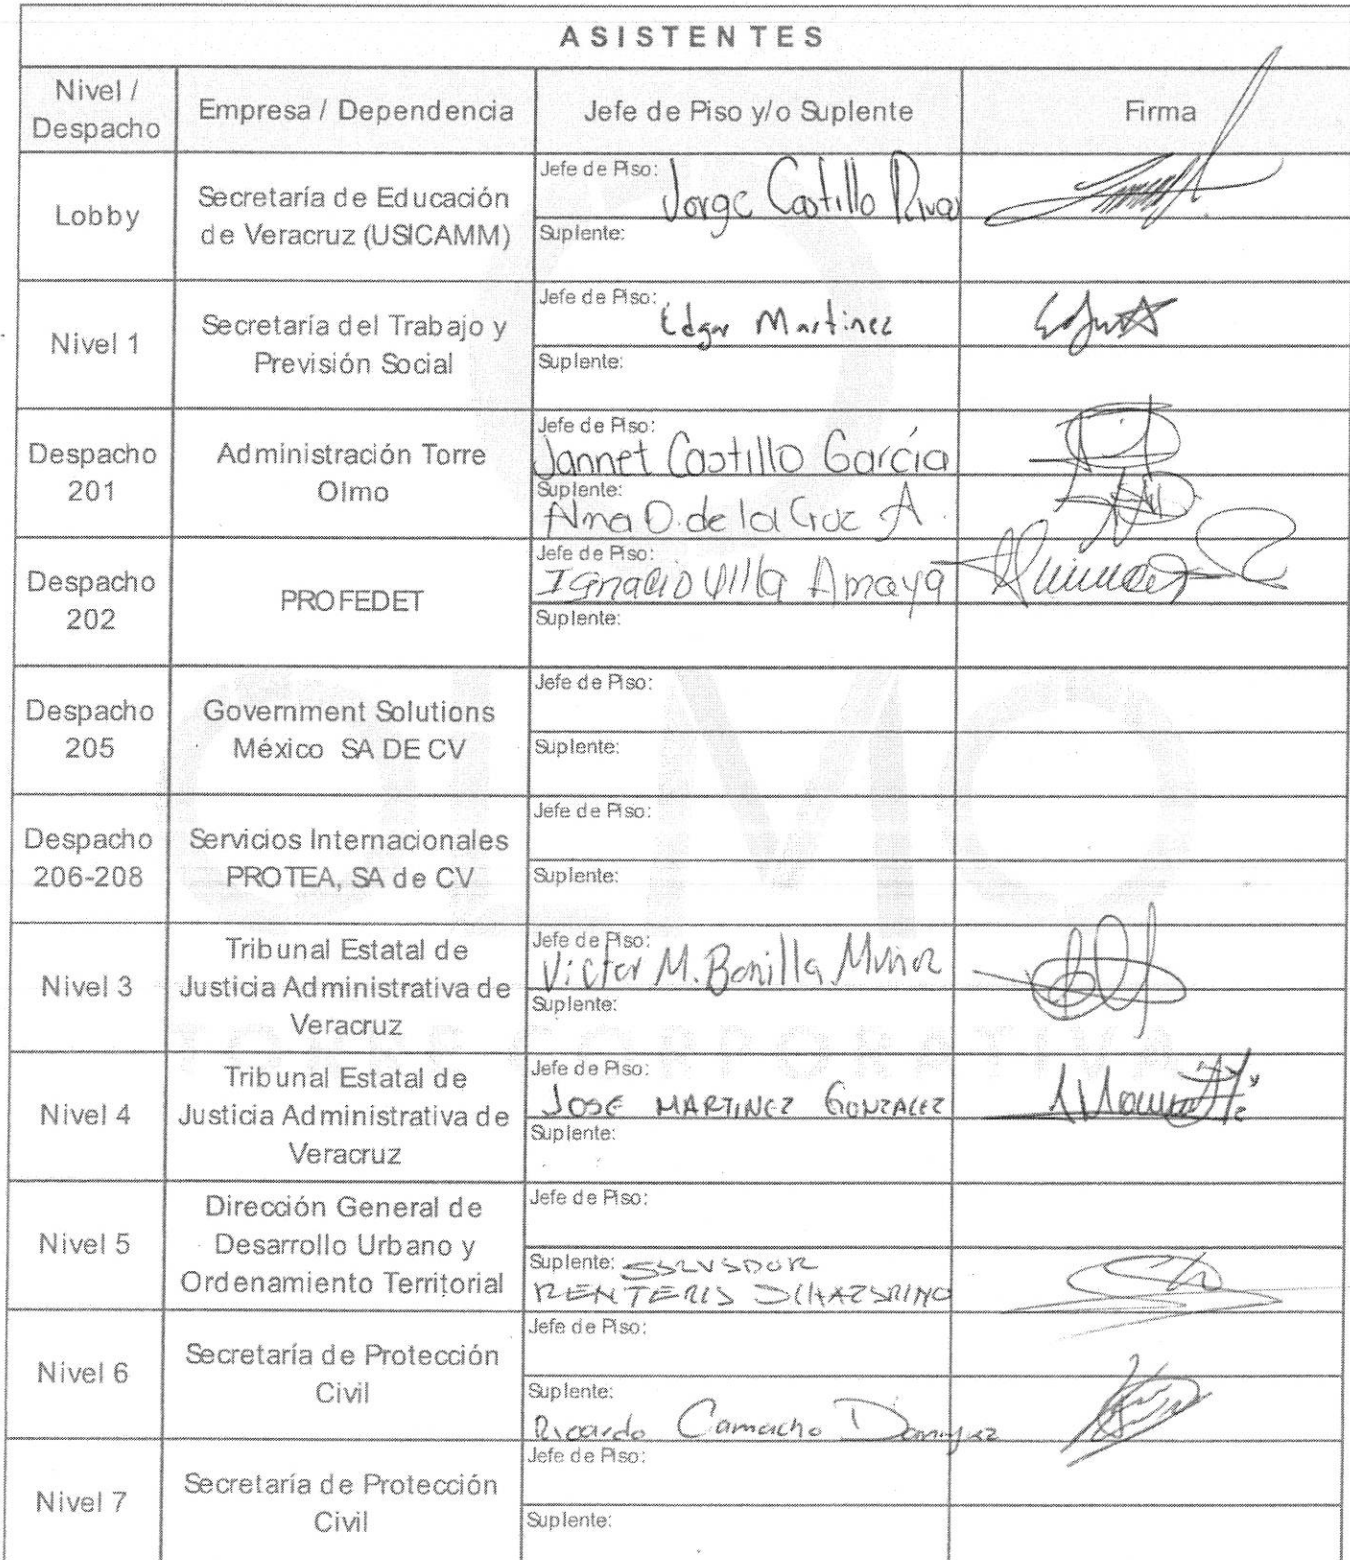 ASISTENTES
Nivel /
Despacho
Empresa / Dependencia
Jefe de Piso y/o Suplente
Firma
Lobby
Secretaría de Educación
de Veracruz (USICAMM)
Jefe de Piso: Jorge Castillo Rivas
Suplente:
Nivel 1
Secretaría del Trabajo y
Previsión Social
Jefe de Piso: Edgar Martinez
Suplente:
Despacho
201
Administración Torre
Olmo
Jefe de Piso:
Jannet Castillo García
Suplente:
Alma D. de la Cruz A.
Despacho
202
PROFEDET
Jefe de Piso:
Ignacio Villa Amaya
Suplente:
Despacho
205
Government Solutions
México SA DE CV
Jefe de Piso:
Suplente:
Despacho
206-208
Servicios Internacionales
PROTEA, SA de CV
Jefe de Piso:
Suplente:
Nivel 3
Tribunal Estatal de
Justicia Administrativa de
Veracruz
Jefe de Piso:
Victor M. Bonilla Muñoz
Suplente:
Nivel 4
Tribunal Estatal de
Justicia Administrativa de
Veracruz
Jefe de Piso:
JOSE MARTINEZ GONZALEZ
Suplente:
Nivel 5
Dirección General de
Desarrollo Urbano y
Ordenamiento Territorial
Jefe de Piso:
Suplente: SALVADOR
RENTERIA
Nivel 6
Secretaría de Protección
Civil
Jefe de Piso:
Suplente:
Ricardo Camacho Dominguez
Nivel 7
Secretaría de Protección
Civil
Jefe de Piso:
Suplente:
OLMO
TORRE CORPORATIVA